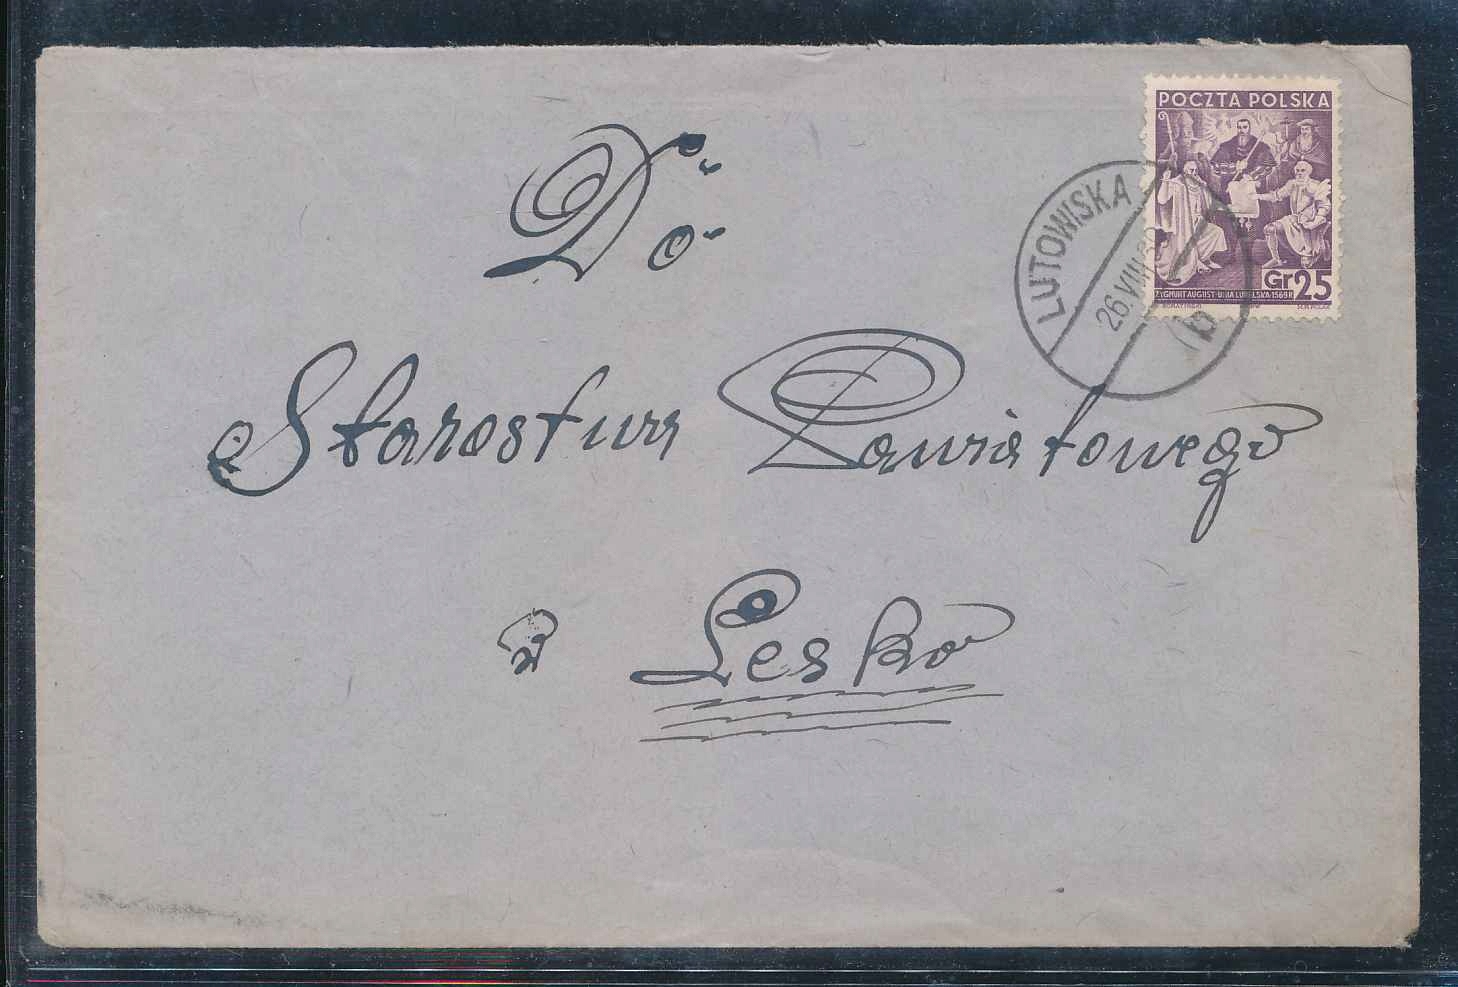 POCZTA POLSKA
Gr 25
ZYGMUNT AUGUST · UNIA LUBELSKA · 1569 R
LUTOWISKA
26.VIII
b
Do
Starostwa Powiatowego
w Lesko